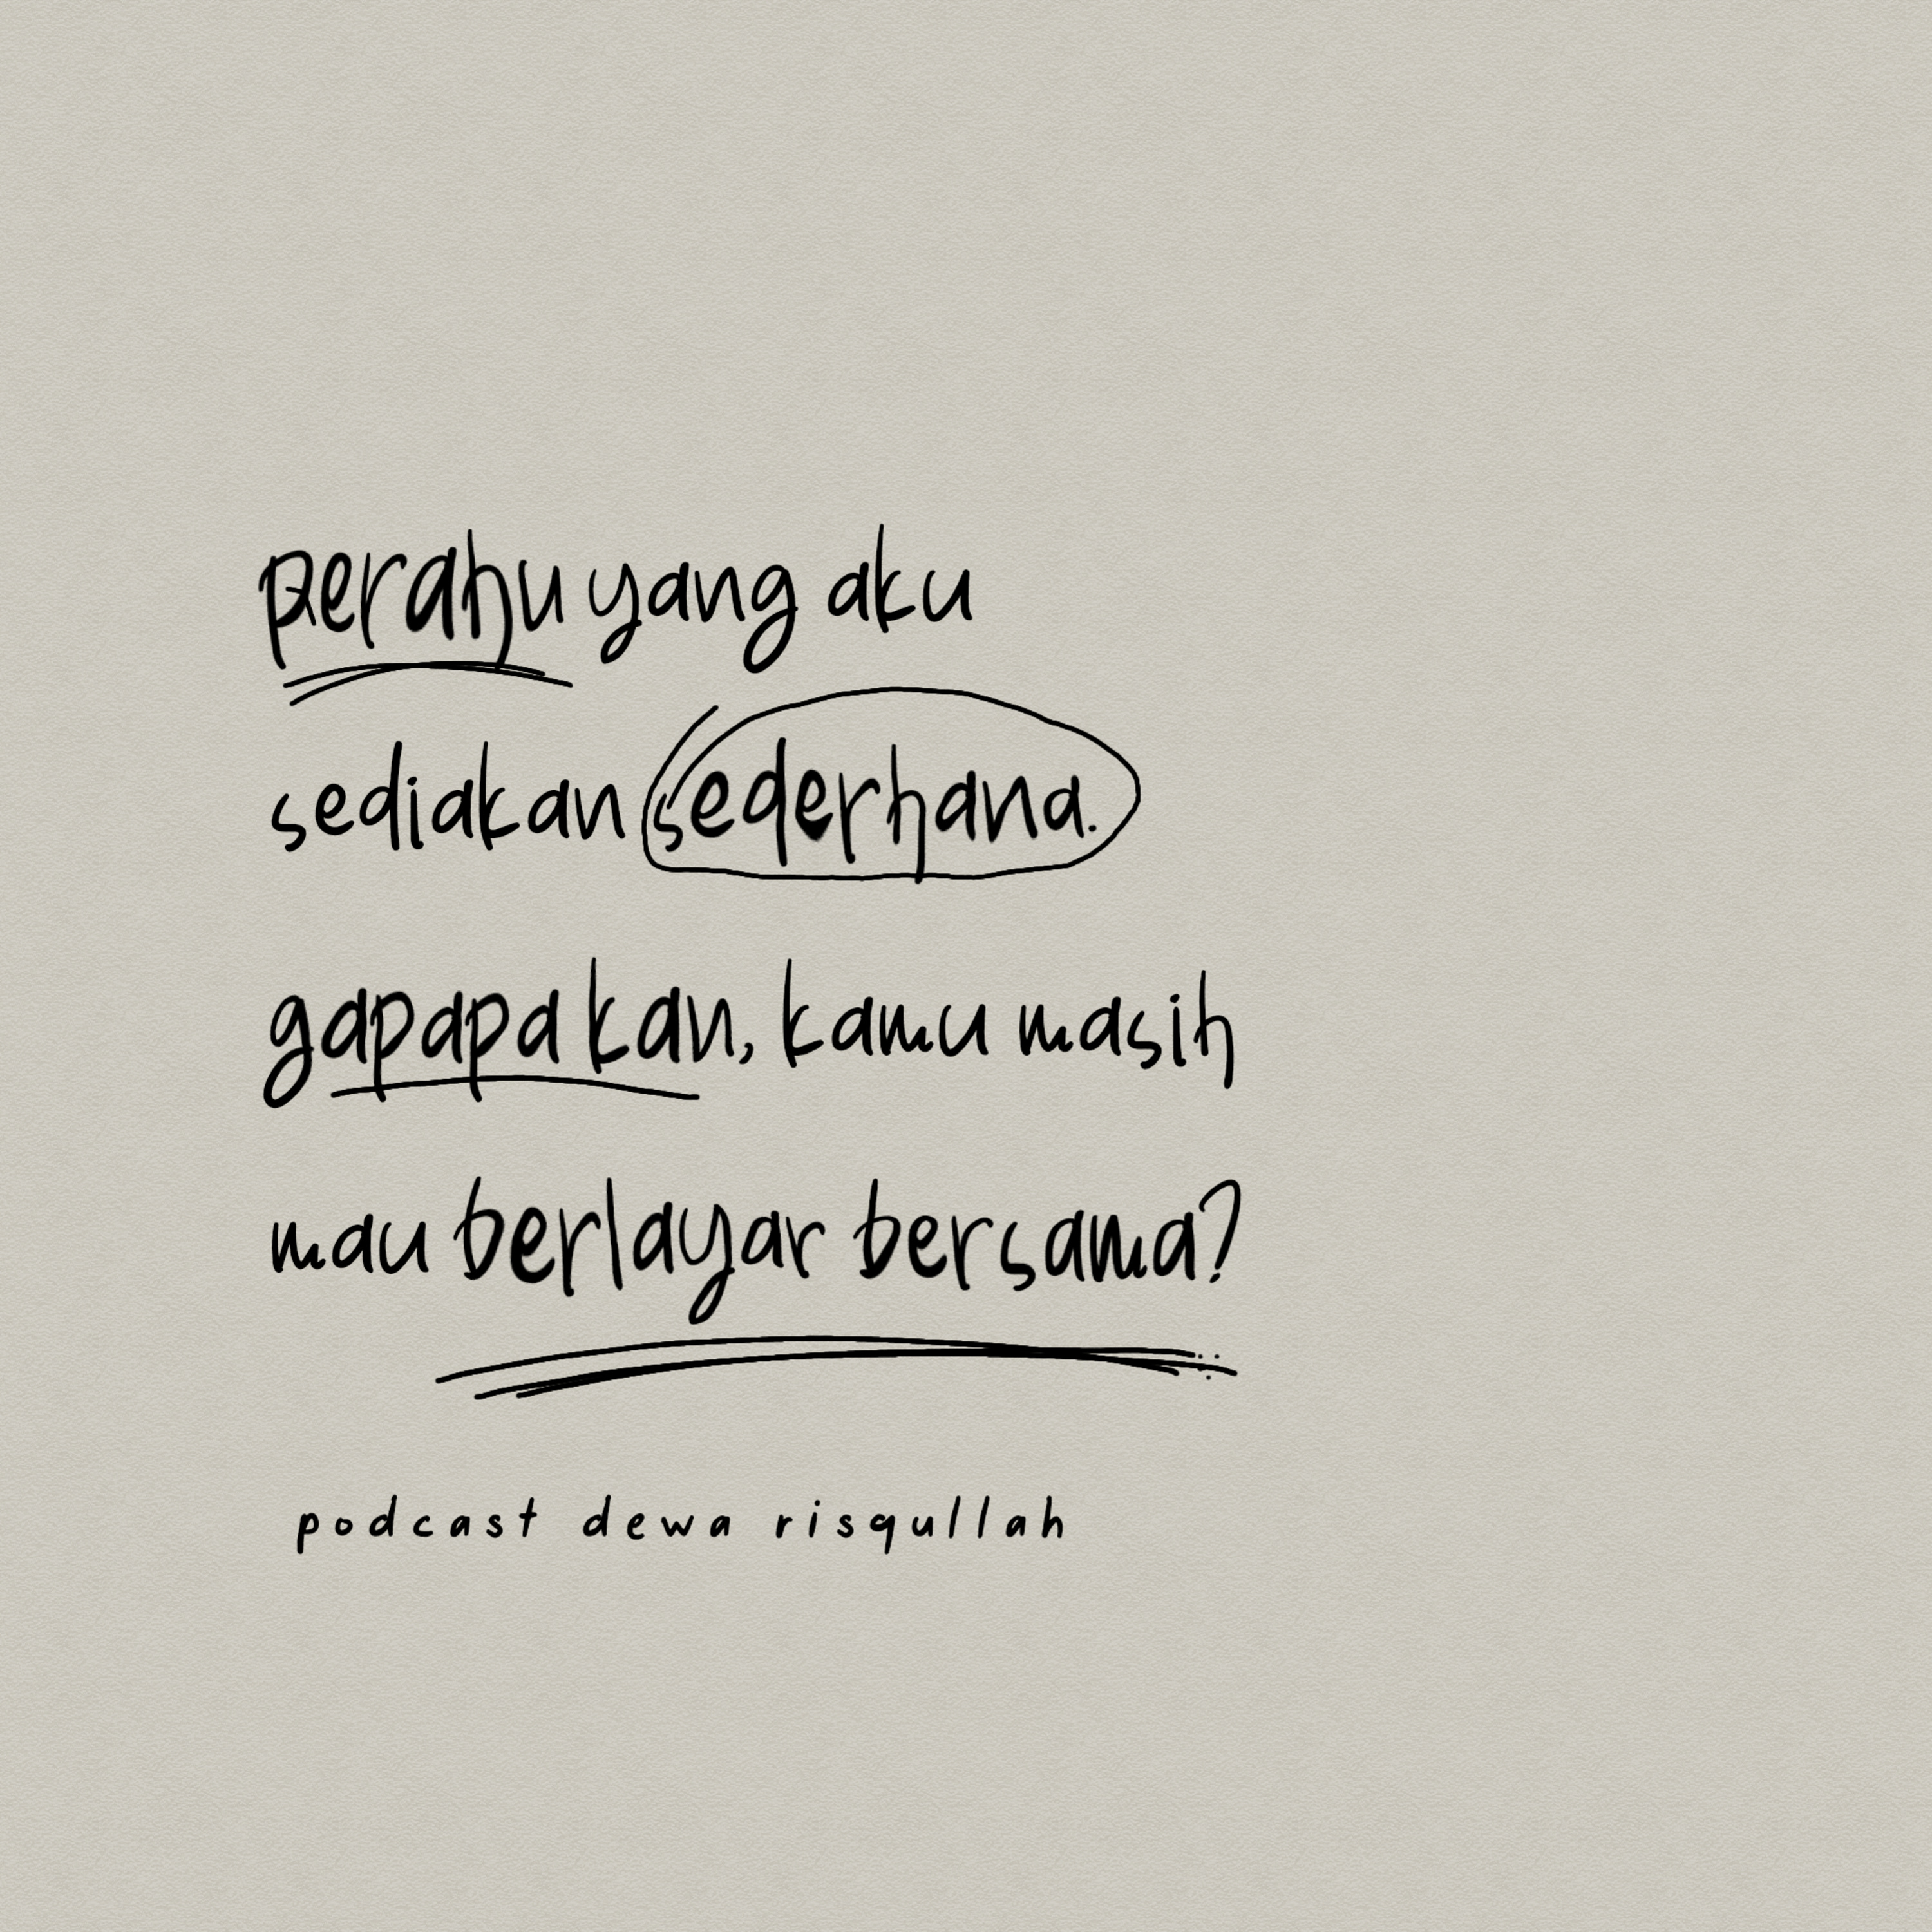 perahu yang aku
sediakan sederhana.
gapapa kan, kamu masih
mau berlayar bersama?
podcast dewa risqullah